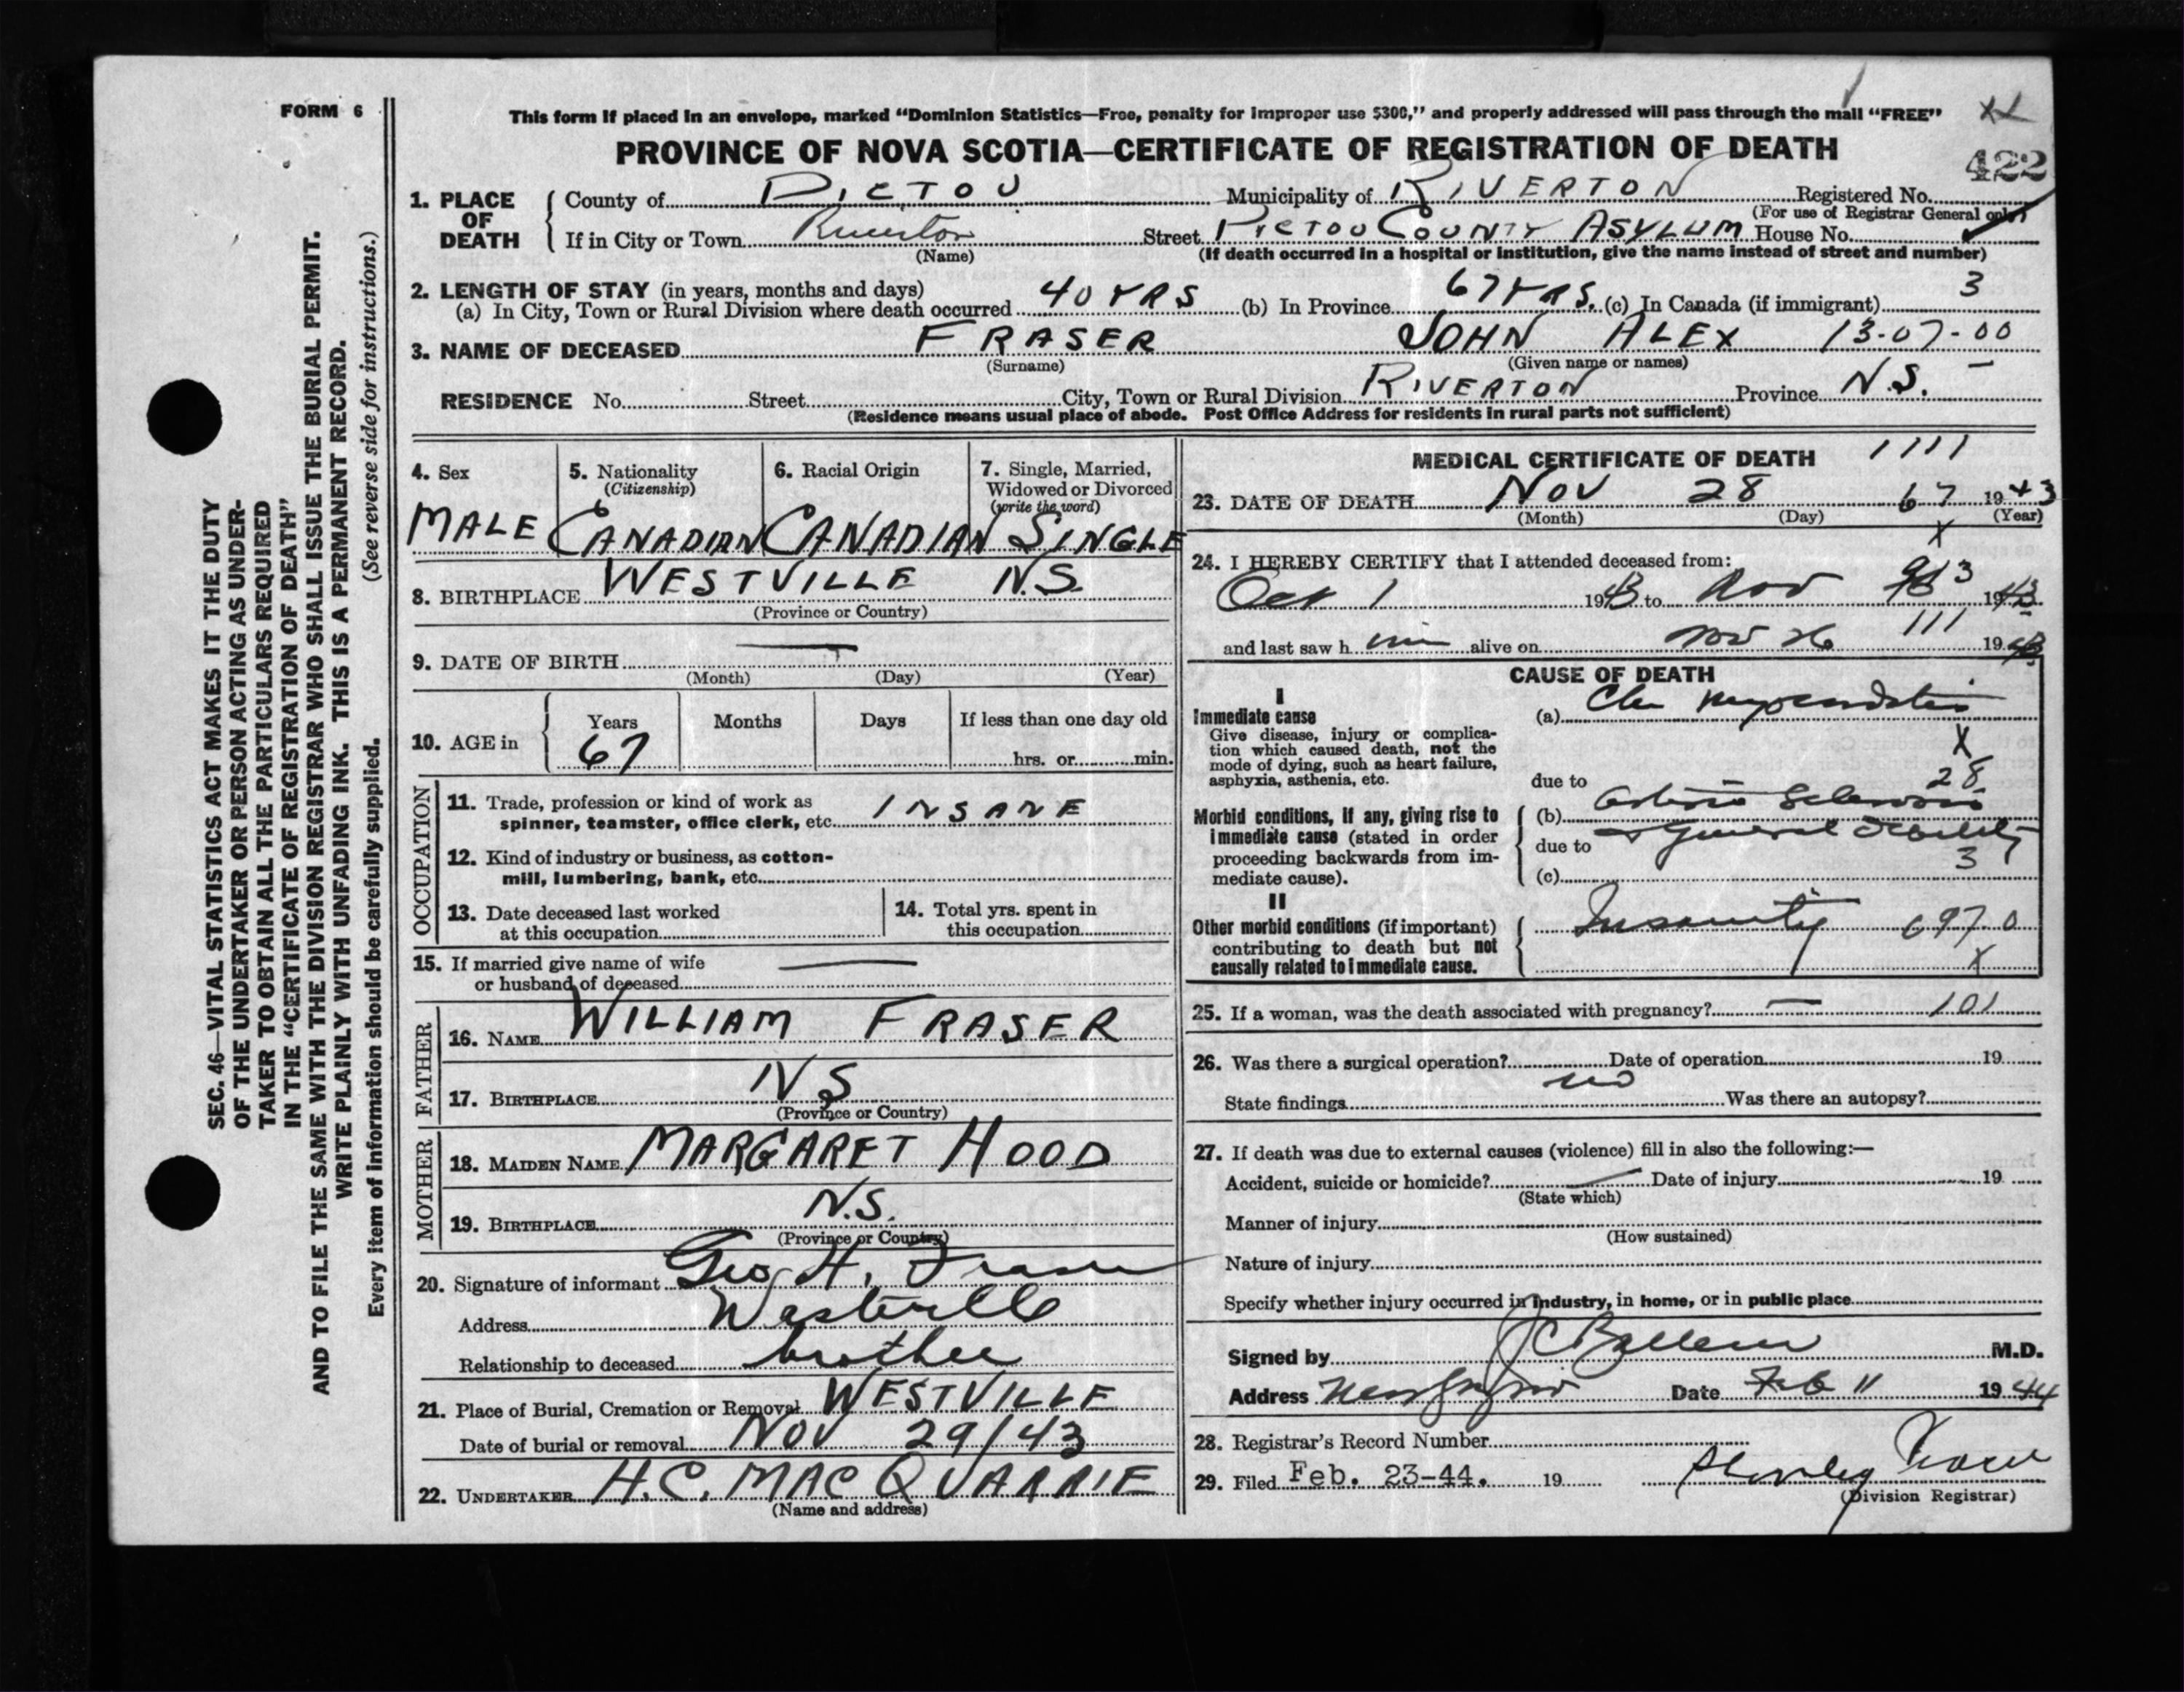 FORM 6
This form if placed in an envelope, marked "Dominion Statistics—Free, penalty for improper use $300," and properly addressed will pass through the mail "FREE"
PROVINCE OF NOVA SCOTIA—CERTIFICATE OF REGISTRATION OF DEATH
422
1. PLACE OF DEATH
County of PICTOU Municipality of RIVERTON Registered No.
(For use of Registrar General only)
If in City or Town Riverton Street PICTOU COUNTY ASYLUM House No.
(Name) (If death occurred in a hospital or institution, give the name instead of street and number)
2. LENGTH OF STAY (in years, months and days)
(a) In City, Town or Rural Division where death occurred 40 YRS (b) In Province 67 YRS. (c) In Canada (if immigrant) 3
3. NAME OF DECEASED FRASER JOHN ALEX 13-07-00
(Surname) (Given name or names)
RESIDENCE No. Street City, Town or Rural Division RIVERTON Province N.S.
(Residence means usual place of abode. Post Office Address for residents in rural parts not sufficient)
SEC. 46—VITAL STATISTICS ACT MAKES IT THE DUTY
OF THE UNDERTAKER OR PERSON ACTING AS UNDER-
TAKER TO OBTAIN ALL THE PARTICULARS REQUIRED
IN THE "CERTIFICATE OF REGISTRATION OF DEATH"
AND TO FILE THE SAME WITH THE DIVISION REGISTRAR WHO SHALL ISSUE THE BURIAL PERMIT.
WRITE PLAINLY WITH UNFADING INK. THIS IS A PERMANENT RECORD.
Every item of information should be carefully supplied. (See reverse side for instructions.)
4. Sex
MALE
5. Nationality
(Citizenship)
CANADIAN
6. Racial Origin
CANADIAN
7. Single, Married,
Widowed or Divorced
(write the word)
SINGLE
8. BIRTHPLACE WESTVILLE N.S.
(Province or Country)
9. DATE OF BIRTH
(Month) (Day) (Year)
10. AGE in
Years Months Days If less than one day old
67 hrs. or min.
OCCUPATION
11. Trade, profession or kind of work as
spinner, teamster, office clerk, etc. INSANE
12. Kind of industry or business, as cotton-
mill, lumbering, bank, etc.
13. Date deceased last worked
at this occupation
14. Total yrs. spent in
this occupation
15. If married give name of wife
or husband of deceased
FATHER
16. NAME WILLIAM FRASER
17. BIRTHPLACE NS
(Province or Country)
MOTHER
18. MAIDEN NAME MARGARET HOOD
19. BIRTHPLACE N.S.
(Province or Country)
20. Signature of informant Geo H. Fraser
Address Westville
Relationship to deceased brother
21. Place of Burial, Cremation or Removal WESTVILLE
Date of burial or removal NOV 29/43
22. UNDERTAKER H.C. MACQUARRIE
(Name and address)
MEDICAL CERTIFICATE OF DEATH 1111
23. DATE OF DEATH NOV 28 67 1943
(Month) (Day) (Year)
X
24. I HEREBY CERTIFY that I attended deceased from:
Oct 1 1943 to Nov 1943
111
and last saw him alive on Nov 26 1943
CAUSE OF DEATH
I
Immediate cause
Give disease, injury or complica-
tion which caused death, not the
mode of dying, such as heart failure,
asphyxia, asthenia, etc.
(a)
X
28
due to
Morbid conditions, if any, giving rise to
immediate cause (stated in order
proceeding backwards from im-
mediate cause).
(b) Arterio Sclerosis
due to & General Debility
3
(c)
II
Other morbid conditions (if important)
contributing to death but not
causally related to immediate cause.
Insanity 697.0
X
25. If a woman, was the death associated with pregnancy? — 101
26. Was there a surgical operation? Date of operation 19
no
State findings Was there an autopsy?
27. If death was due to external causes (violence) fill in also the following:—
Accident, suicide or homicide? Date of injury 19
(State which)
Manner of injury
(How sustained)
Nature of injury
Specify whether injury occurred in industry, in home, or in public place
Signed by JC Ballem M.D.
Address New Glasgow Date Feb 11 1944
28. Registrar's Record Number
29. Filed Feb. 23-44. 19
(Division Registrar)